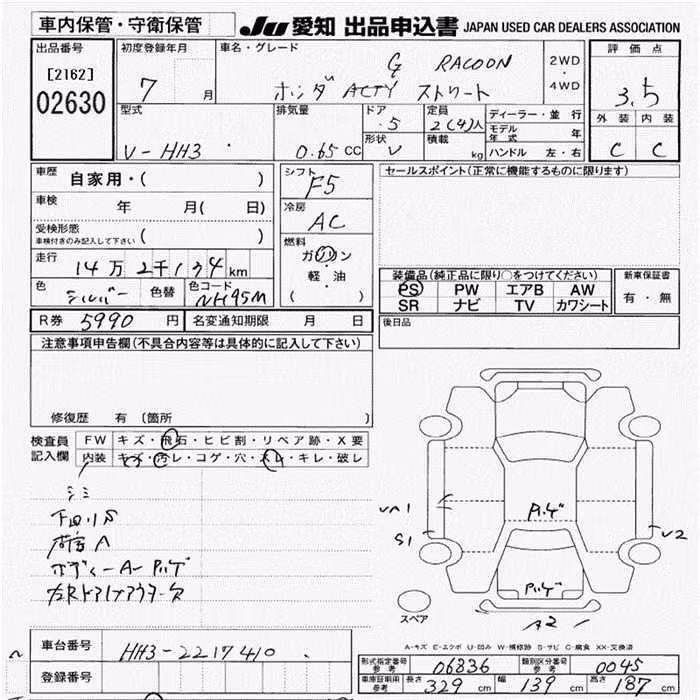 車内保管・守衛保管
JU 愛知 出品申込書 JAPAN USED CAR DEALERS ASSOCIATION
出品番号
[2162]
02630
初度登録年月
7 月
車名・グレード
G RACOON
ホンダ ACTY ストリート
2WD
・
4WD
評価点
3.5
外装 内装
C C
型式
V-HH3
排気量
0.65 CC
ドア
5
形状
V
定員
2(4)人
積載
kg
ディーラー・並行
モデル年式 年
ハンドル 左・右
車歴
自家用・( )
車検
年 月( 日)
受検形態
車検付きのみ記入して下さい ( )
走行
14万2千134km
色
シルバー
色替
色コード
NH95M
シフト
F5
冷房
AC
燃料
ガソリン
・
軽・油
( )
セールスポイント(正常に機能するものに限ります)
装備品(純正品に限り○をつけてください)
PS PW エアB AW
SR ナビ TV カワシート
新車保証書
有・無
R券 5990 円
名変通知期限 月 日
後日品
注意事項申告欄(不具合内容等は具体的に記入して下さい)
修復歴 有 〔箇所 〕
検査員
記入欄
FW キズ・飛石・ヒビ割・リペア跡・X要
内装 キズ・汚レ・コゲ・穴・スレ・キレ・破レ
シミ
下回りS
ボディーA-ハルゲ
ハルゲ
ハルゲ
S1
V2
A2
スペア
A-キズ E-エクボ U-凹み W-補修跡 S-サビ C-腐食 XX-交換済
車台番号
HH3-2217410
登録番号
型式指定番号
参考
06336
類別区分番号
参考
0045
車庫証明用
参考
長さ 329 cm
幅 139 cm
高さ 187 cm